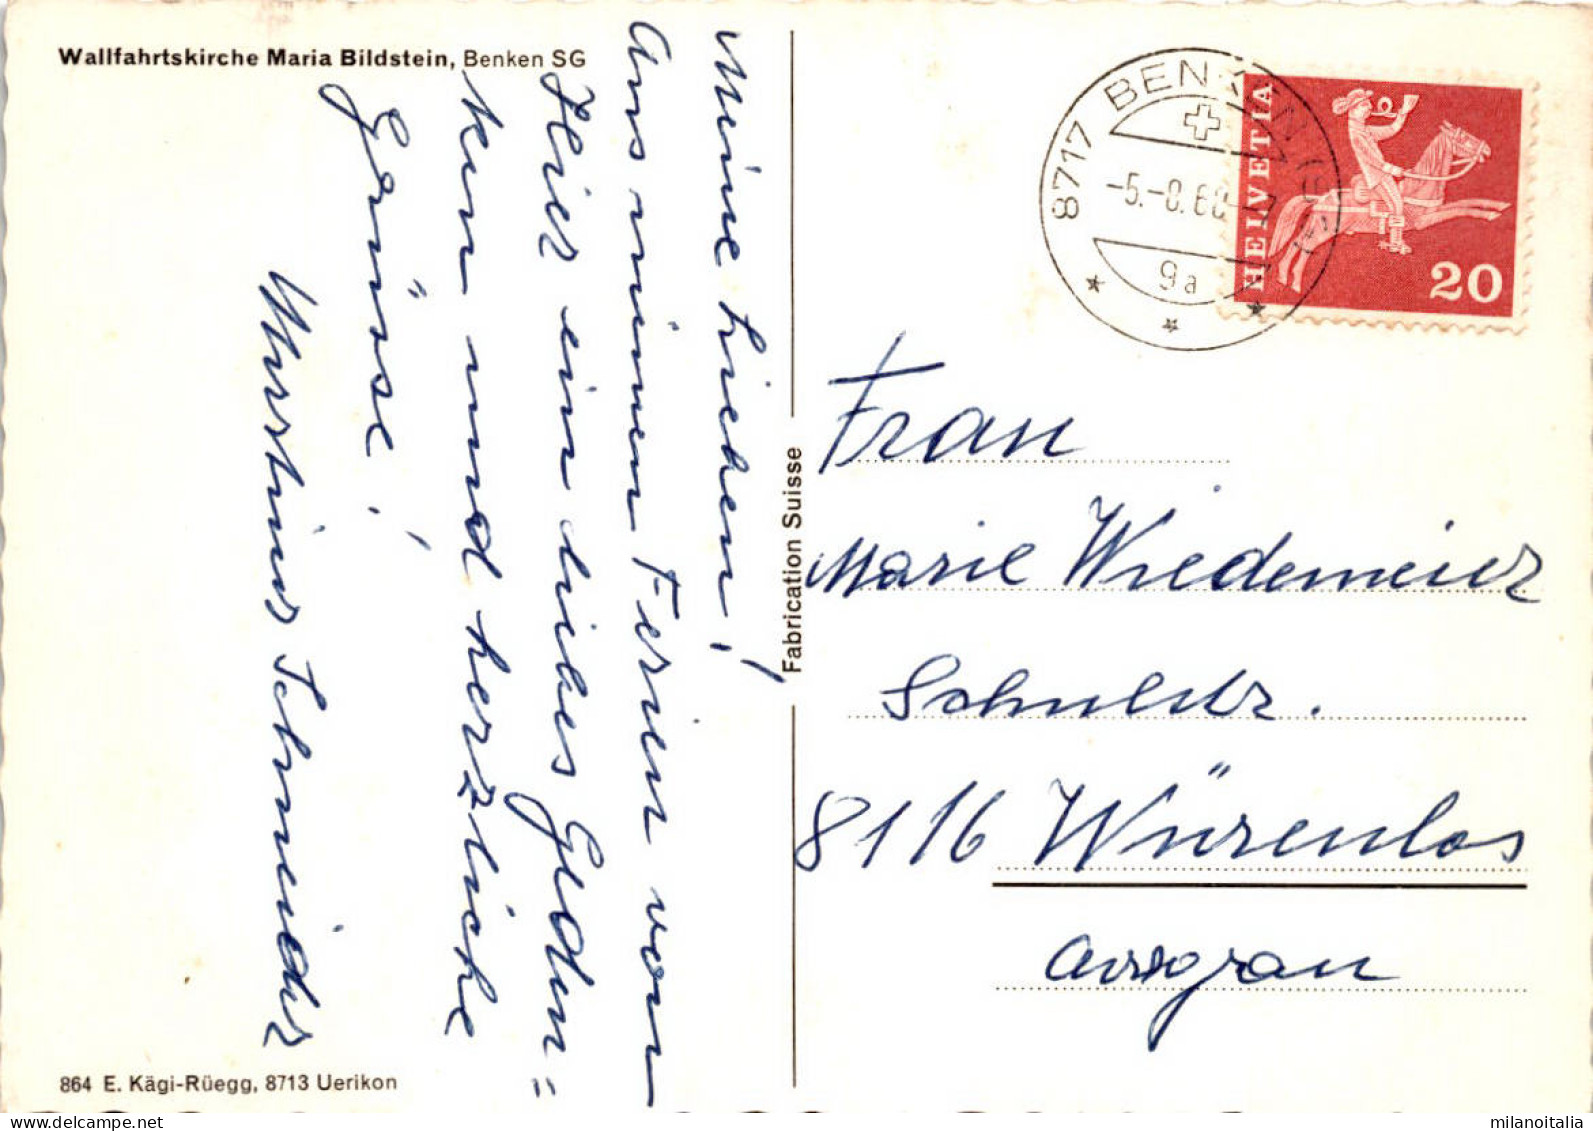 Wallfahrtskirche Maria Bildstein, Benken SG
Meine Lieben!
Aus meinen Ferien von
Hier ein liebes Geden=
ken und herzliche
Grüsse!
Schneider
864 E. Kägi-Rüegg, 8713 Uerikon
Fabrication Suisse
8717 BENKEN (SG)
-5.-8.68-7
9a
HELVETIA
20
Frau
Marie Wiedemeier
8116 Würenlos
Aargau
milanoitalia